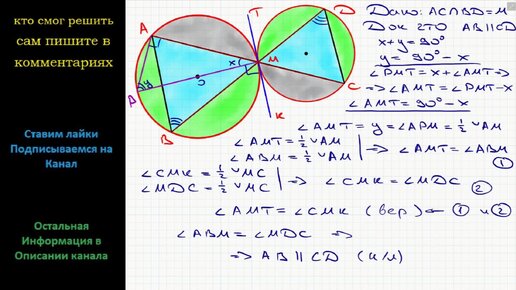 кто смог решить
сам пишите в
комментариях
Ставим лайки
Подписываемся на
Канал
Остальная
Информация в
Описании канала
A
P
y
B
O
x
M
T
K
D
C
Дано: AC∩BD=M
Док что AB∥CD
x+y=90°
y=90°-x
∠PMT=x+∠AMT ⇒
⇒∠AMT=∠PMT-x
∠AMT=90°-x
∠AMT=y=∠APM=½ ◡AM
∠AMT=½ ◡AM
∠ABM=½ ◡AM
⇒ ∠AMT=∠ABM
①
∠CMK=½ ◡MC
∠MDC=½ ◡MC
⇒ ∠CMK=∠MDC ②
∠AMT=∠CMK (вер) ← ① и ②
∠ABM=∠MDC ⇒
⇒ AB∥CD (н/л)